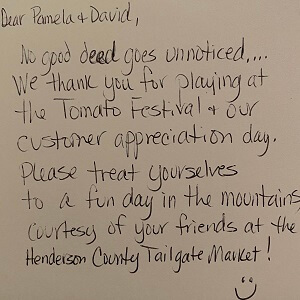 Dear Pamela & David,
No good deed goes unnoticed,...
We thank you for playing at
the Tomato Festival & our
customer appreciation day.
Please treat yourselves
to a fun day in the mountains
courtesy of your friends at the
Henderson County Tailgate Market!